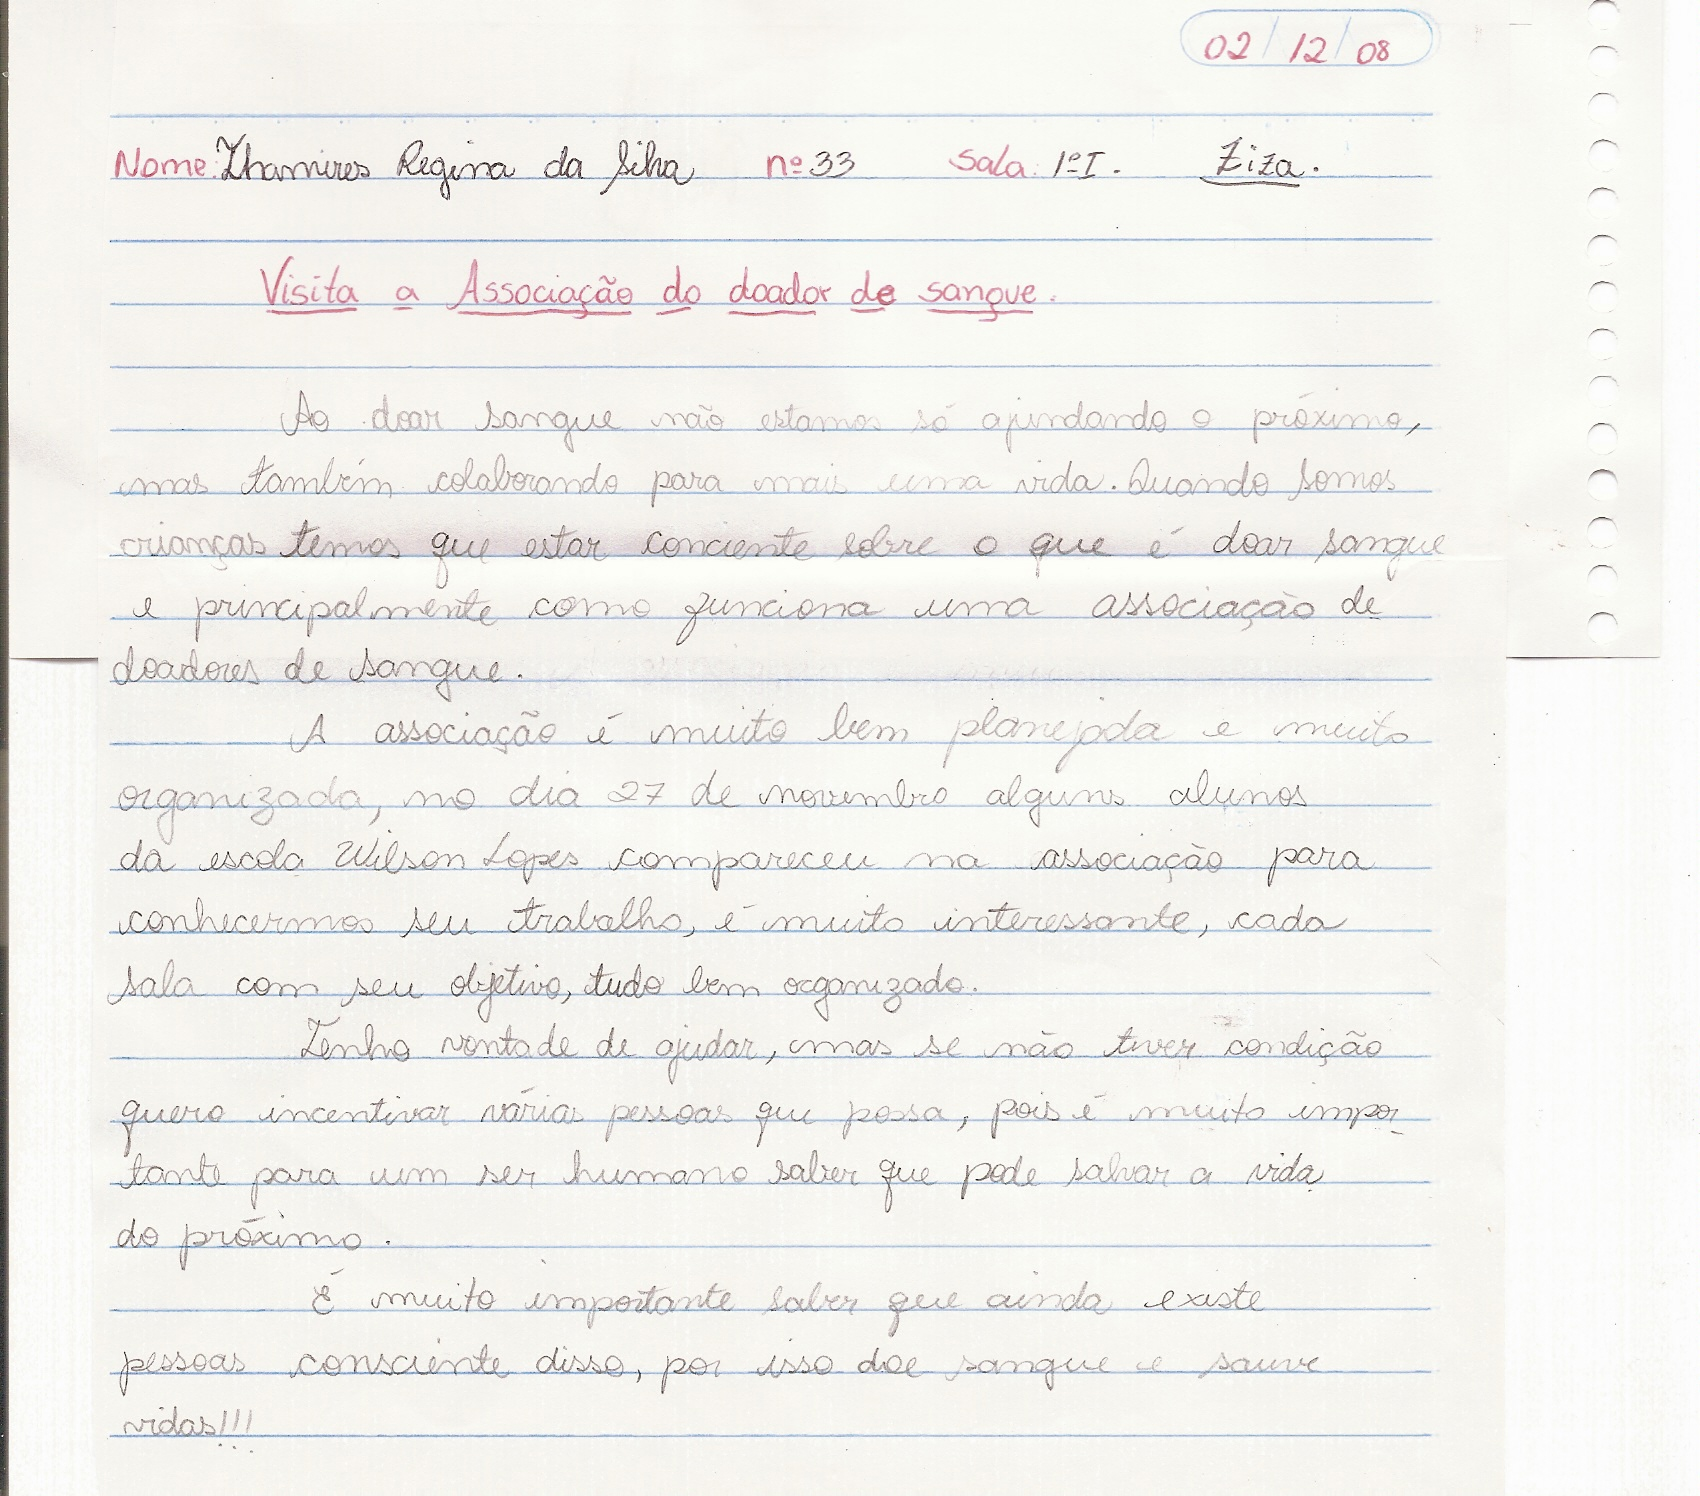 02/12/08
Nome: Thamires Regina da Silva nº 33 Sala: 1º I. Ziza.
Visita a Associação do doador de sangue.
Ao doar sangue não estamos só ajundando o próximo,
mas também colaborando para mais uma vida. Quando somos
crianças temos que estar conciente sobre o que é doar sangue
e principalmente como funciona uma associação de
doadores de sangue.
A associação é muito bem planejada e muito
organizada, no dia 27 de novembro alguns alunos
da escola Wilson Lopes compareceu na associação para
conhecermos seu trabalho, é muito interessante, cada
sala com seu objetivo, tudo bem organizado.
Tenho vontade de ajudar, mas se não tiver condição
quero incentivar várias pessoas que possa, pois é muito impor
tante para um ser humano saber que pode salvar a vida
do próximo.
É muito importante saber que ainda existe
pessoas consciente disso, por isso doe sangue e sauve
vidas!!!